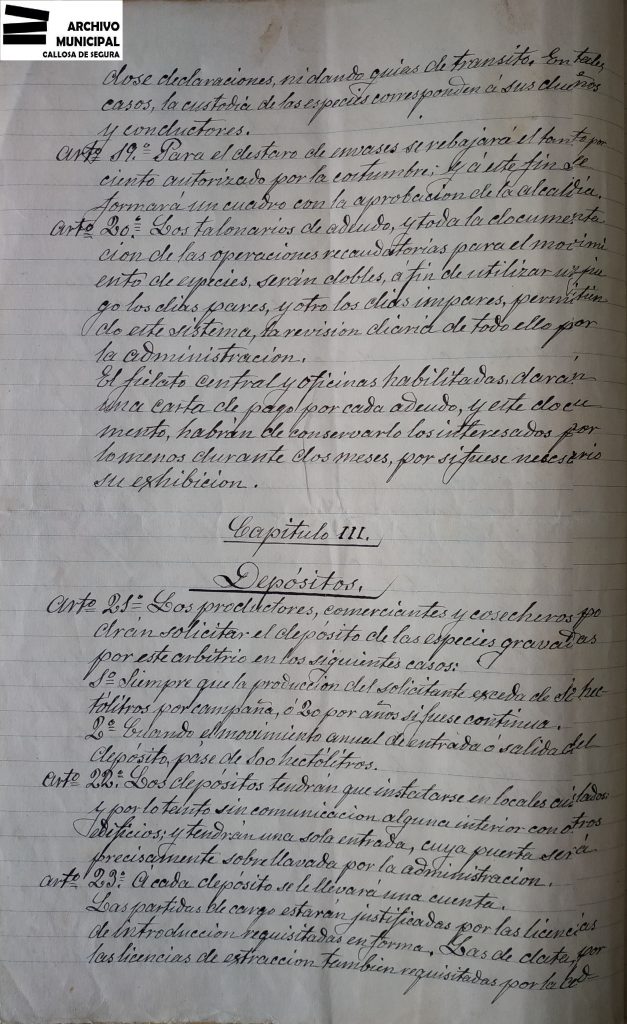 ARCHIVO
MUNICIPAL
CALLOSA DE SEGURA
dose declaraciones, ni dando guias de transito. En tales
casos, la custodia de las especies corresponden á sus dueños
y conductores.
Artº 19.º Para el destaro de envases se rebajará el tanto por
ciento autorizado por la costumbre; y á este fin se
formará un cuadro con la aprobacion de la alcaldia.
Artº 20.º Los talonarios de adeudo, y toda la documenta
cion de las operaciones recaudatorias para el movimi
ento de especies, serán dobles, a fin de utilizar un jue
go los dias pares, y otro los dias impares, permitien
do este sistema, la revisión diaria de todo ello por
la administracion.
El fielato central y oficinas habilitadas, darán
una carta de pago por cada adeudo, y este docu
mento, habrán de conservarlo los interesados por
lo menos durante dos meses, por si fuese necesario
su exhibicion.
Capitulo III.
Depósitos.
Artº 21º Los productores, comerciantes y cosecheros po
drán solicitar el depósito de las especies gravadas
por este arbitrio en los siguientes casos:
1º Siempre que la produccion del solicitante exceda de hec-
tólitros por campaña, ó 20 por años si fuese continua.
2º Cuando el movimiento anual de entrada ó salida del
depósito, pase de 100 hectólitros.
Artº 22º. Los depósitos tendrán que instalarse en locales aislados
y por lo tanto sin comunicacion alguna interior con otros
edificios; y tendrán una sola entrada, cuya puerta será
precisamente sobrellavada por la administracion.
Artº 23º. A cada depósito se le llevará una cuenta.
Las partidas de cargo estarán justificadas por las licencias
de introduccion requisitadas en forma. Las de data, por
las licencias de extraccion tambien requisitadas por la